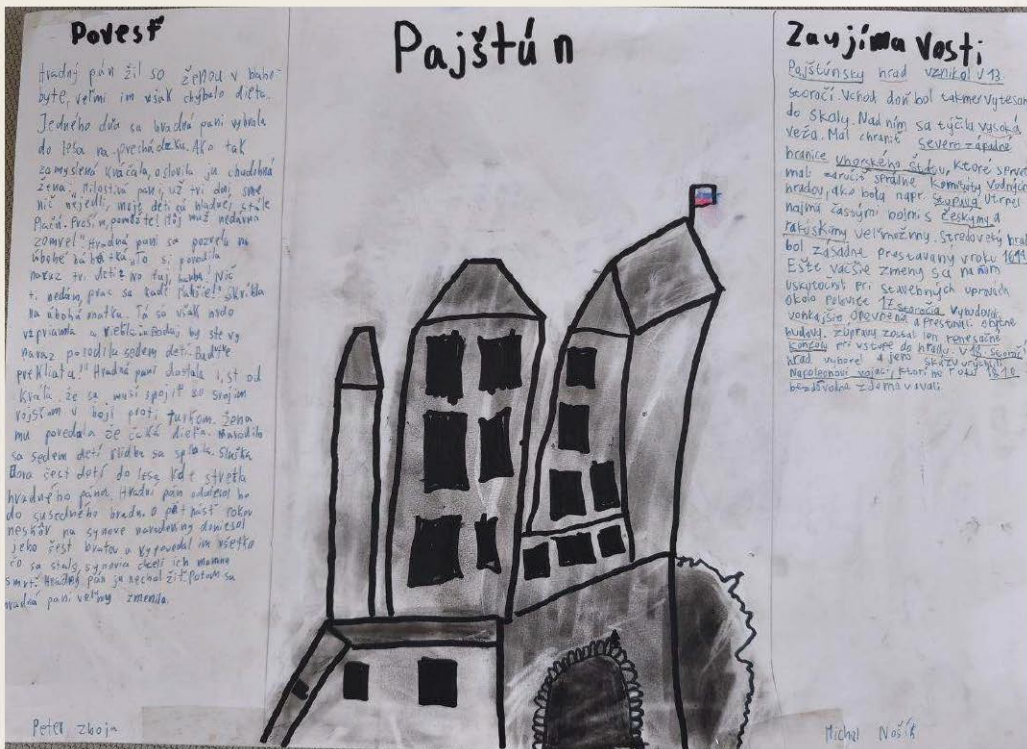 Povesť
Hradný pán žil so ženou v blaho-
byte, veľmi im však chýbalo dieťa.
Jedného dňa sa hradná pani vybrala
do lesa na prechádzku. Ako tak
zamyslená kráčala, oslovila ju chudobná
žena: Milostivá pani, už tri dni sme
nič nejedli, moje deti od hladu stále
plačú. Prosím, pomôžte! Môj muž nedávno
zomrel." Hradná pani sa pozrela na
úbohé bábätká. To si porodila
naraz tri deti? No taj Nič
ti nedám, prac sa kadi ľahšie! Skríkla
na úbohú matku. Tá sa však
vzpriamila a riekla: Bodaj by ste vy
naraz porodila sedem detí. Buďte
prekliata!" Hradná pani dostala list od
kráľa, že sa musí spojiť so svojím
vojskom v boji proti Turkom. Žena
mu povedala že čaká dieťa. Narodilo
sa sedem detí kliatba sa splnila. Slúžka
šesť detí do lesa kde stretla
hradného pána. Hradní pán odniesol ho
do susedného hradu. O päťnásť rokov
neskôr na synove narodeniny doniesol
jeho šesť bratov a vypovedal im všetko
čo sa stalo, synovia chceli ich mamina
smrť. Hradný pán ju nechal žiť. Potom sa
hradná pani veľmy zmenila.
Peter Zboja
Pajštún
Zaujímavosti
Pajštúnsky hrad vznikol v 13.
storočí. Vchod doň bol takmer vytesaný
do skaly. Nad ním sa týčila vysoká
veža. Mal chrániť severozápadné
hranice Uhorského štátu, ktoré sprvu
mali zaručiť správne komitáty vodných
hradov, ako bola napr. Stupava. Utrpel
najmä častými bojmi s českými a
rakúskymi veľmožmi. Stredoveký hrad
bol zásadne prestavaný v roku
Ešte väčšie zmeny sa na ňom
uskutočnili pri stavebných úpravách
okolo polovice 17. storočia. Vybudovali
vonkajšie opevnenia a prestavali obytné
budovy. Z úpravy zostali len renesančné
konzoly pri vstupe do hradu. V 18. storočí
hrad vyhorel a jeho skazu urýchlili
Napoleonovi vojaci, ktorí ho roku 1810
bezdôvodne zdemolovali.
Michal Nošík